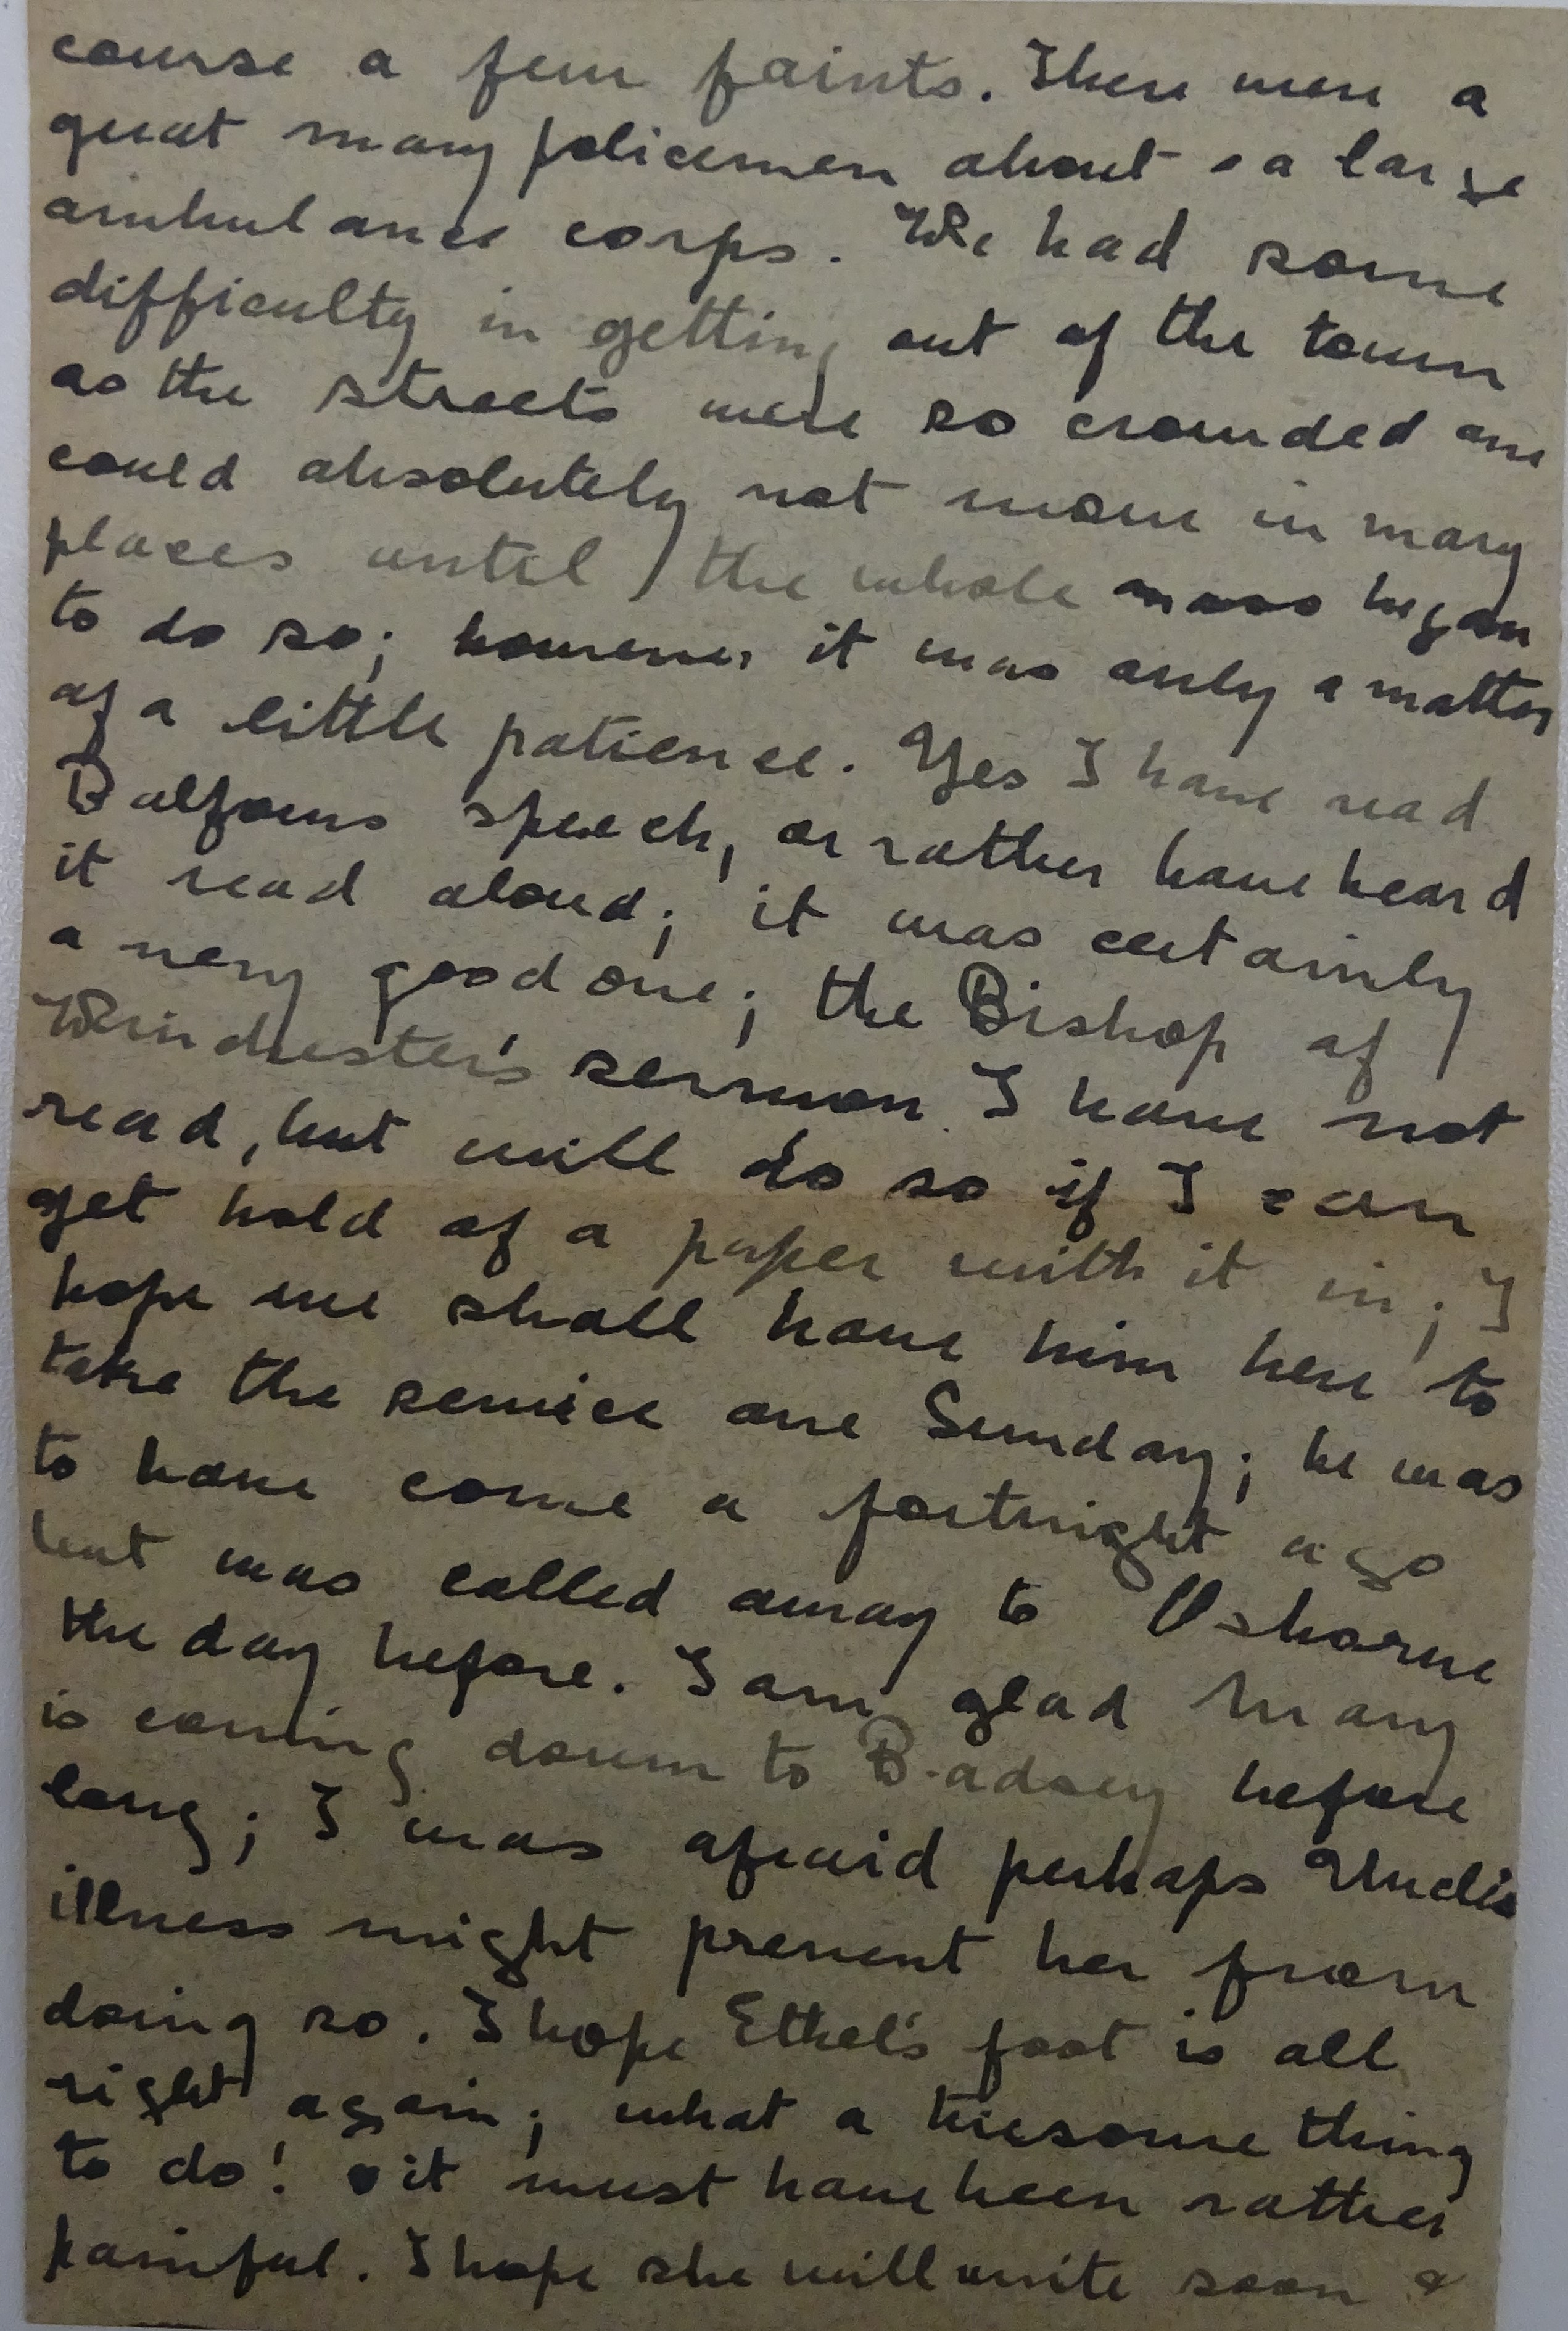 course a few faints. There were a
great many policemen about & a large
ambulance corps. We had some
difficulty in getting out of the town
as the streets were so crowded one
could absolutely not move in many
places until the whole mass began
to do so; however it was only a matter
of a little patience. Yes I have read
Balfours speech, or rather have heard
it read aloud; it was certainly
a very good one; the Bishop of
Winchester's sermon I have not
read, but will do so if I can
get hold of a paper with it in; I
hope we shall have him here to
take the service one Sunday; he was
to have come a fortnight ago
but was called away to Osborne
the day before. I am glad Mary
is coming down to Badsey before
long; I was afraid perhaps Uncle's
illness might prevent her from
doing so. I hope Ethel's foot is all
right again; what a tiresome thing
to do! it must have been rather
painful. I hope she will write soon &